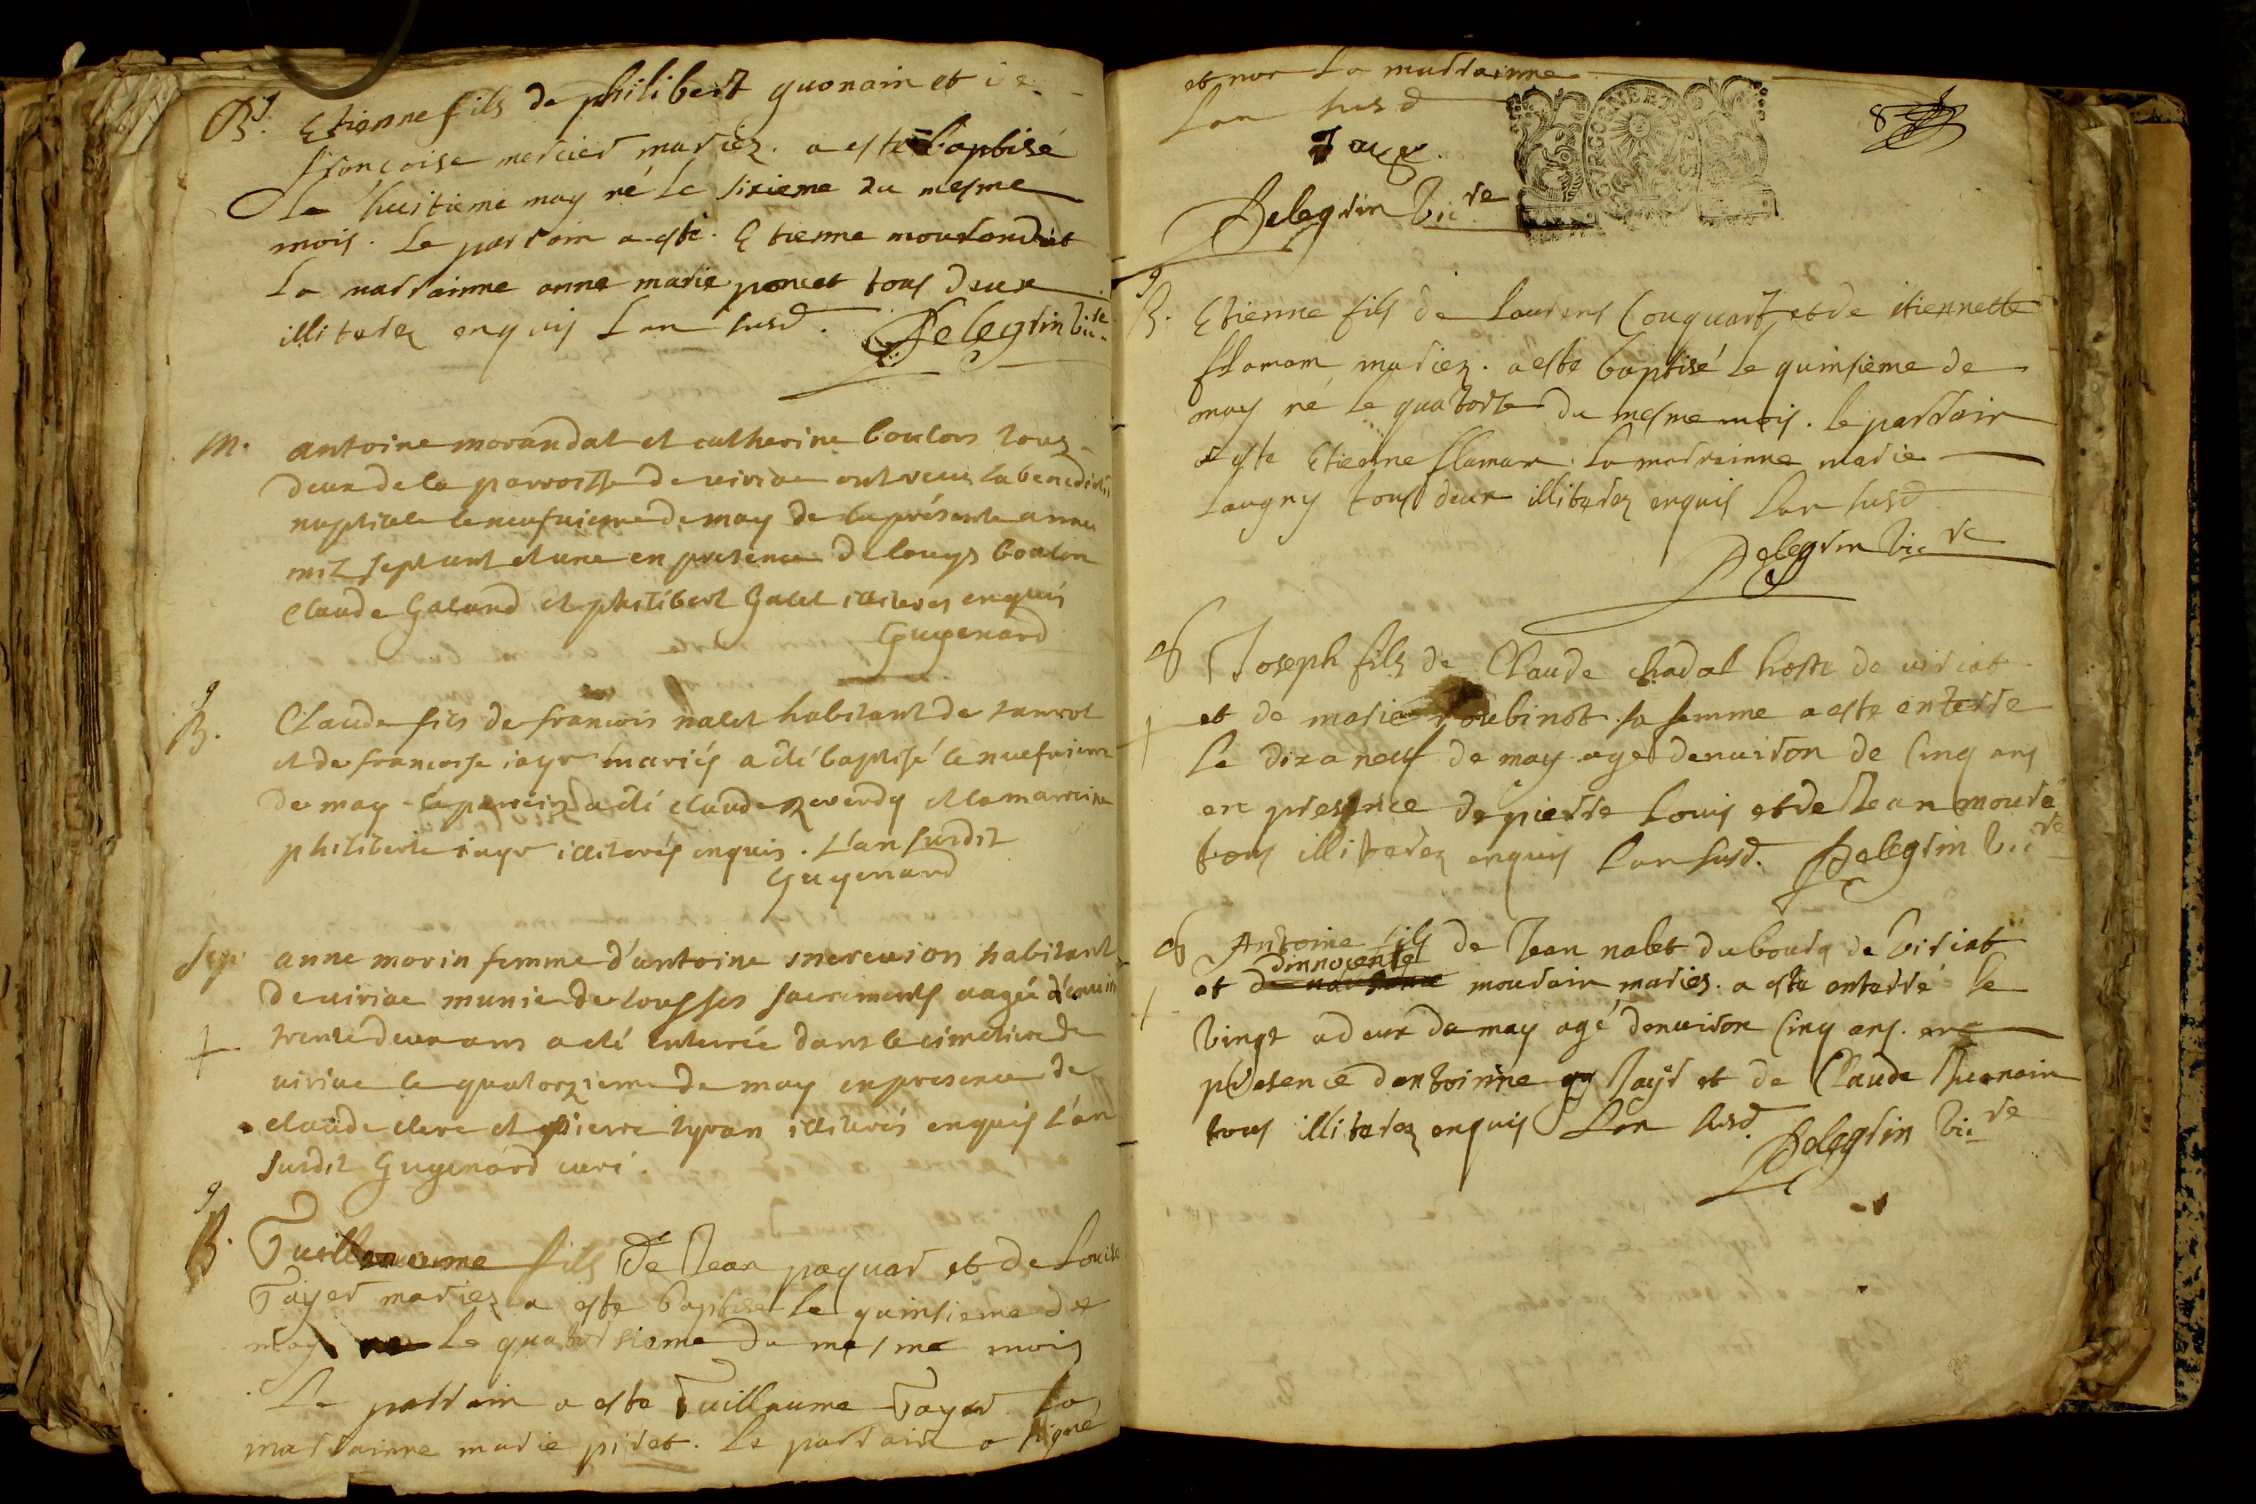 B. Etienne fils de philibert guonain et de
francoise mercier mariez. a este baptisé
Le huitieme may né le sixieme du mesme
mois. Le parrain a esté. Etienne mourandat
La marrainne anne marie poncet tous deux
illiterez enquis Lan susd. Pelegrin vicre
M. antoine morandat et catherine boulon tous
deux de la parroisse de viriac ont receu la benediction
nuptiale le neufvieme de may de la présente annee
mil sept cent et une en presence de louys boulon
claude Galand et philibert Galet illiteres enquis
Guyenard
B. Claude fils de francois nalet habitant de
et de francoise iayr mariés a eté baptisé le neufvieme
de may le parrein a eté claude reverdy et la marreine
philiberte iayr illiterés enquis. L'an susdit
Guyenard
Sep. anne morin femme d'antoine habitant
de viriac munie de tous ses sacrements aagée d'environ
trente deux ans a eté enterrée dans le cimetiere de
viriac le quatorzieme de may en presence de
claude clerc et pierre tyvan illiterés enquis l'an
susdit Guyenard curé.
B. Guillaume fils de Jean paquar et de Louise
Gayer mariez a este baptisé le quinsieme de
may né le quatorsieme du mesme mois
Le parrain a este Guillaume Gayer. La
marrainne marie piret. Le parrain a signé
et non La marrainne
Lan susd
Pelegrin vicre
8
B. Etienne fils de Laurens Couquart et de etiennette
flamam mariez. a este baptisé le quinsieme de
may né le quatorse du mesme mois. le parrain
a este Etienne flaman. La marrainne marie
Laugny tous deux illiterez enquis Lan susd
Pelegrin vicre
Joseph fils de Claude chadal hoste de viriat
et de marie roubinot sa femme a este enterre
Le dix a neuf de may agé denuiron de cinq ans
en presence de pierre Louis et de Jean mouré
tous illiterez enquis Lan susd. Pelegrin vicre
Antoine fils de Jean nalet du bourg de viriat
dinnocente
et de mourain mariez. a este enterré le
vingt a deux de may agé denuiron cinq ans. en
presence dantoinne Jayr et de Claude Guonain
tous illiterez enquis Lan susd. Pelegrin vicre